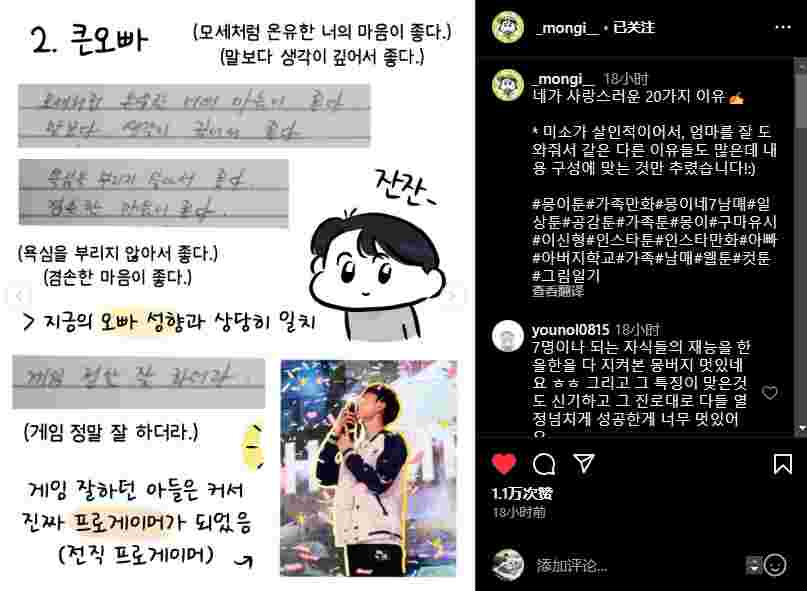 2. 큰오빠
(모세처럼 온유한 너의 마음이 좋다.)
(말보다 생각이 깊어서 좋다.)
모세처럼 온유한 너의 마음이 좋다
말보다 생각이 깊어서 좋다.
욕심을 부리지 않아서 좋다.
겸손한 마음이 좋다.
잔잔_
(욕심을 부리지 않아서 좋다.)
(겸손한 마음이 좋다.)
> 지금의 오빠 성향과 상당히 일치
게임 정말 잘 하더라.
(게임 정말 잘 하더라.)
게임 잘하던 아들은 커서
진짜 프로게이머가 되었음
(전직 프로게이머)
_mongi__ • 已关注
_mongi__ 18小时
네가 사랑스러운 20가지 이유✍
* 미소가 살인적이어서, 엄마를 잘 도
와줘서 같은 다른 이유들도 많은데 내
용 구성에 맞는 것만 추렸습니다!:)
#몽이툰#가족만화#몽이네7남매#일
상툰#공감툰#가족툰#몽이#구마유시
#이신형#인스타툰#인스타만화#아빠
#아버지학교#가족#남매#웹툰#컷툰
#그림일기
查看翻译
younol0815 18小时
7명이나 되는 자식들의 재능을 한
올한을 다 지켜본 몽버지 멋있네
요 ㅎㅎ 그리고 그 특징이 맞은것
도 신기하고 그 진로대로 다들 열
정넘치게 성공한게 너무 멋있어
1.1万次赞
18小时前
添加评论...